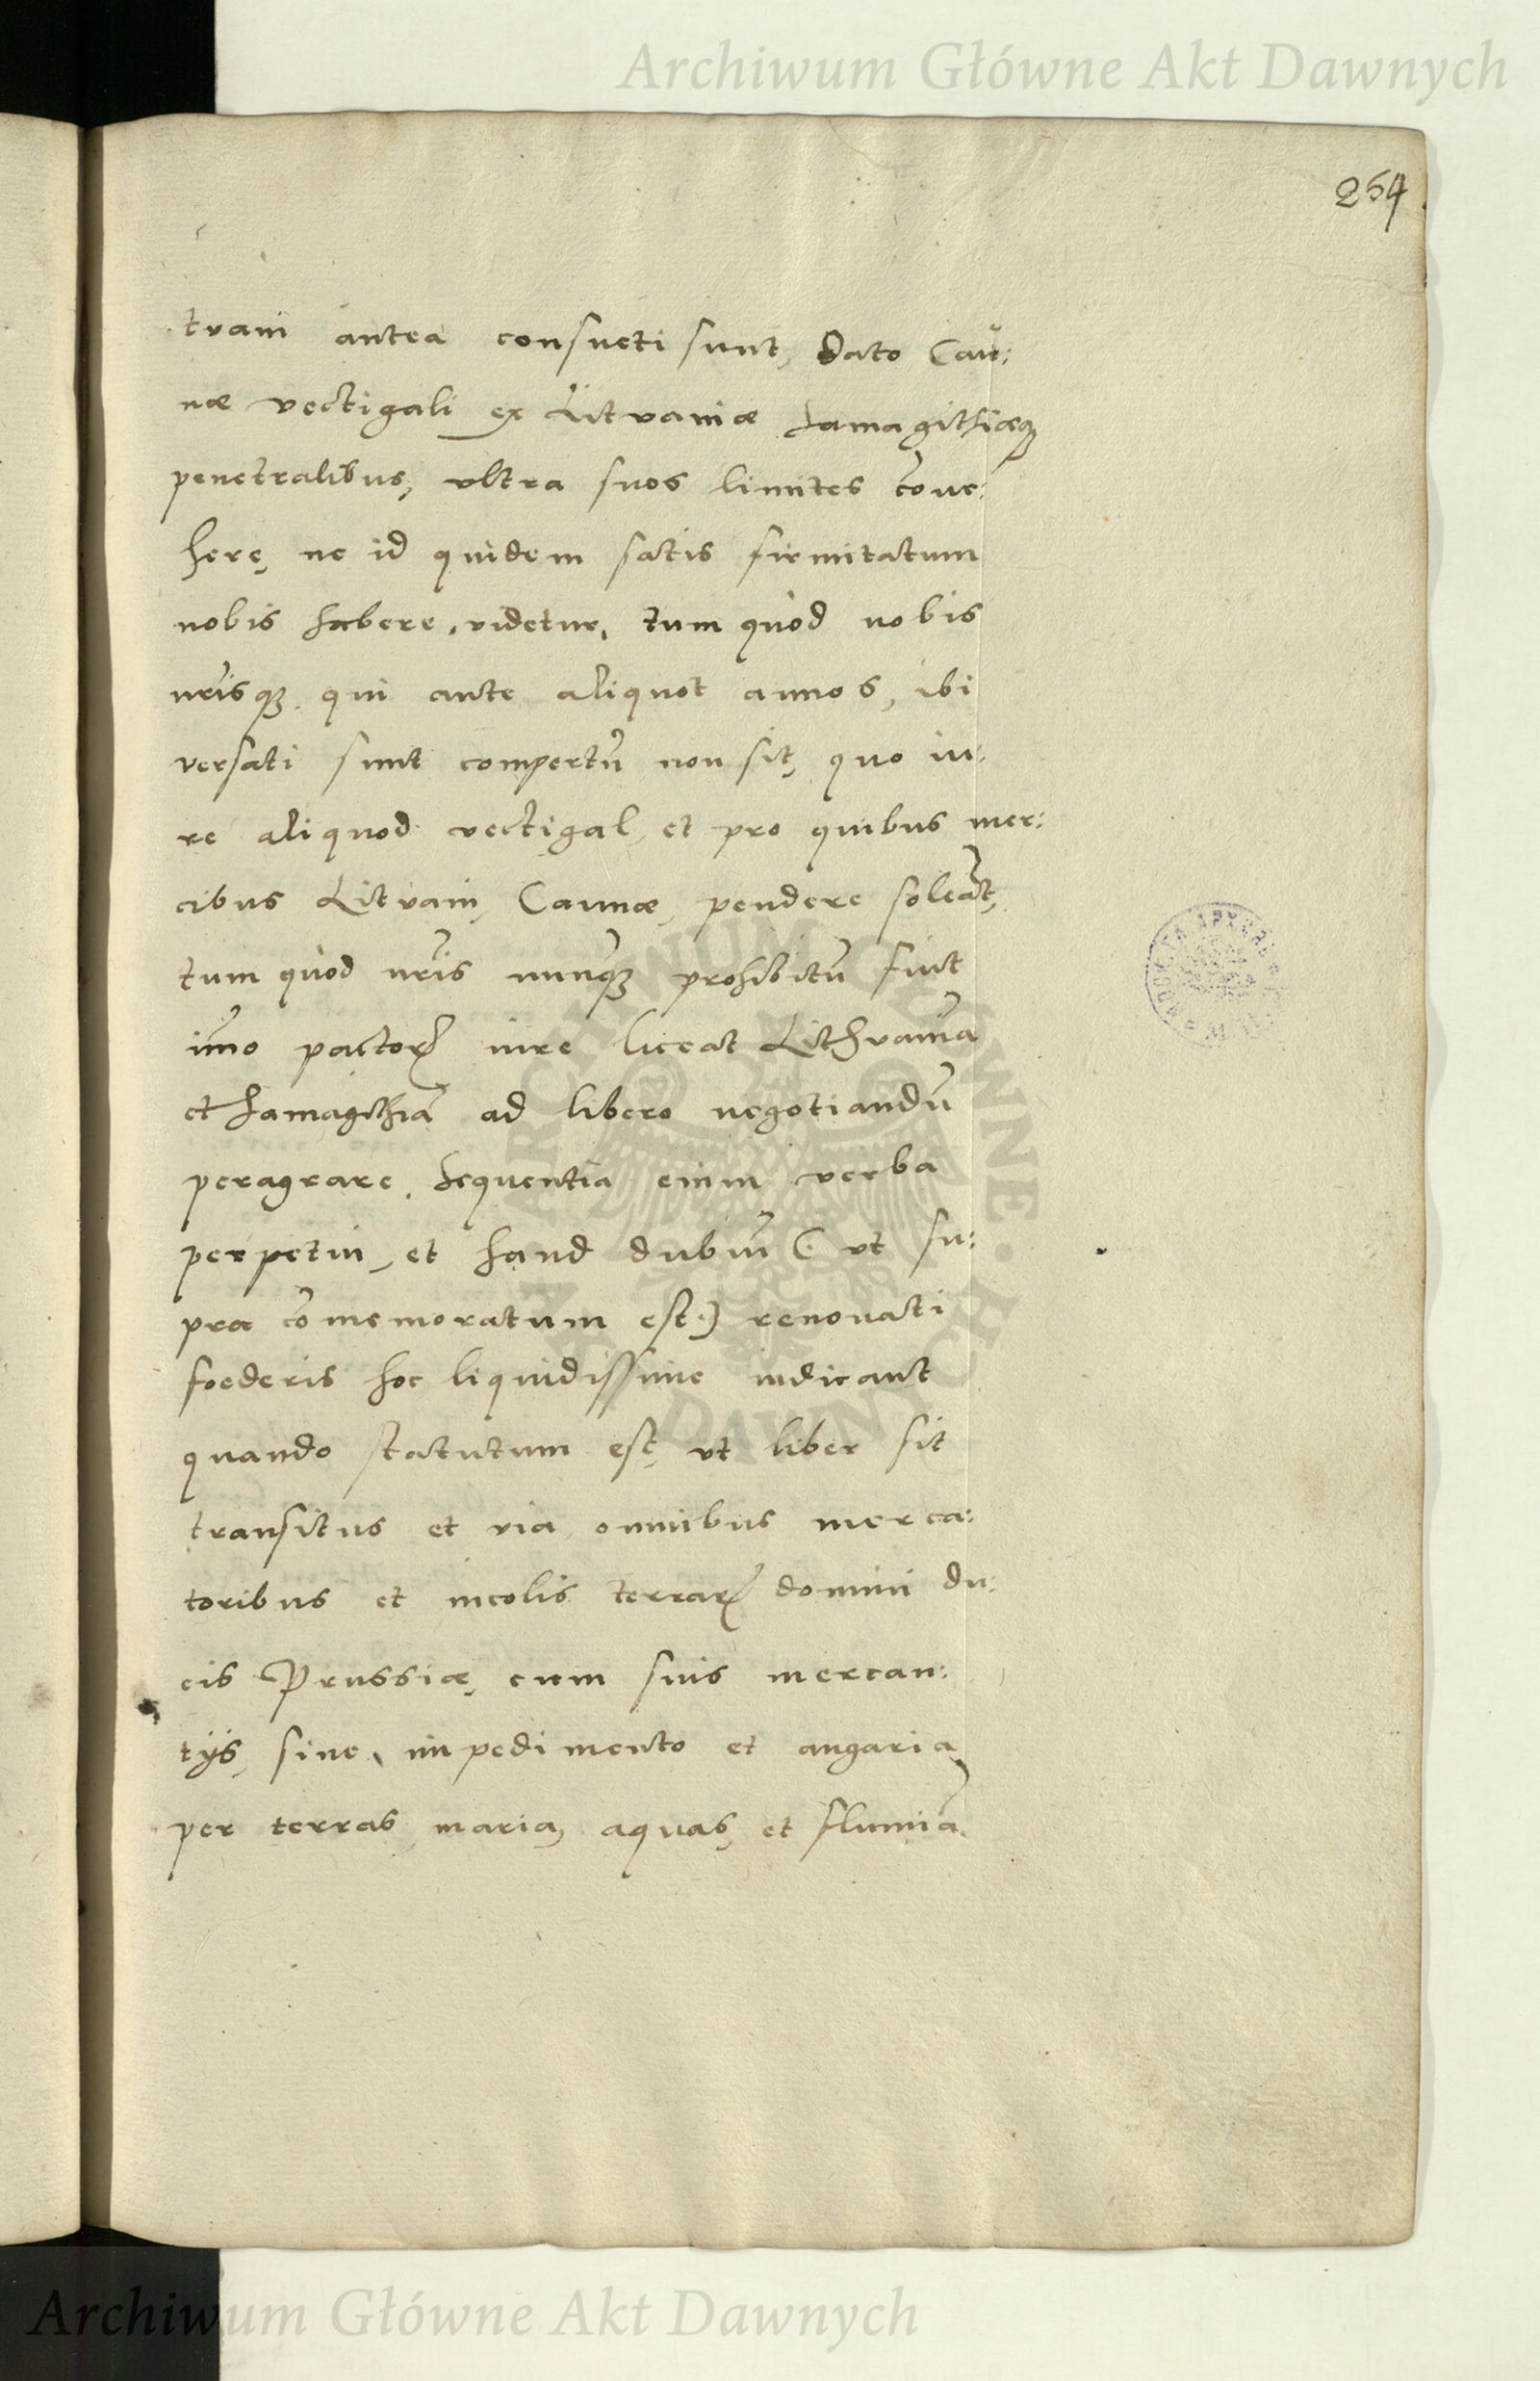 Archiwum Główne Akt Dawnych
254
tuani antea consueti sunt, Dato Cau:
næ vectigali ex Lituaniæ Samagithiæq;
penetralibus, ultra suos limites cōue:
here, ne id quidem satis firmitatum
nobis habere videtur, tum quòd nobis
nr̃isq; qui ante aliquot annos, ibi
versati sunt compertũ non sit, quo iu:
re aliquod vectigal, et pro quibus mer:
cibus Lituani, Caunæ, pendere soleāt,
tum quòd nr̃is nunq̃ prohibitũ fuit
im̃o pactoꝝ iure liceat Lithuaniā
et Samagithiā ad libero negotiandũ
peragrare. Sequentia enim verba
perpetui, et haud dubiũ (: ut su:
pra cōmemoratum est:) renouati
foederis hoc liquidissime indicant
quando statutum est, ut liber sit
transitus et via omnibus merca:
toribus et incolis terraꝝ domini du:
cis Prussiæ, cum suis mercan:
tijs, sine impedimento et angaria
per terras, maria, aquas, et flumiā
ARCHIWUM GŁÓWNE AKT DAWNYCH
Archiwum Główne Akt Dawnych